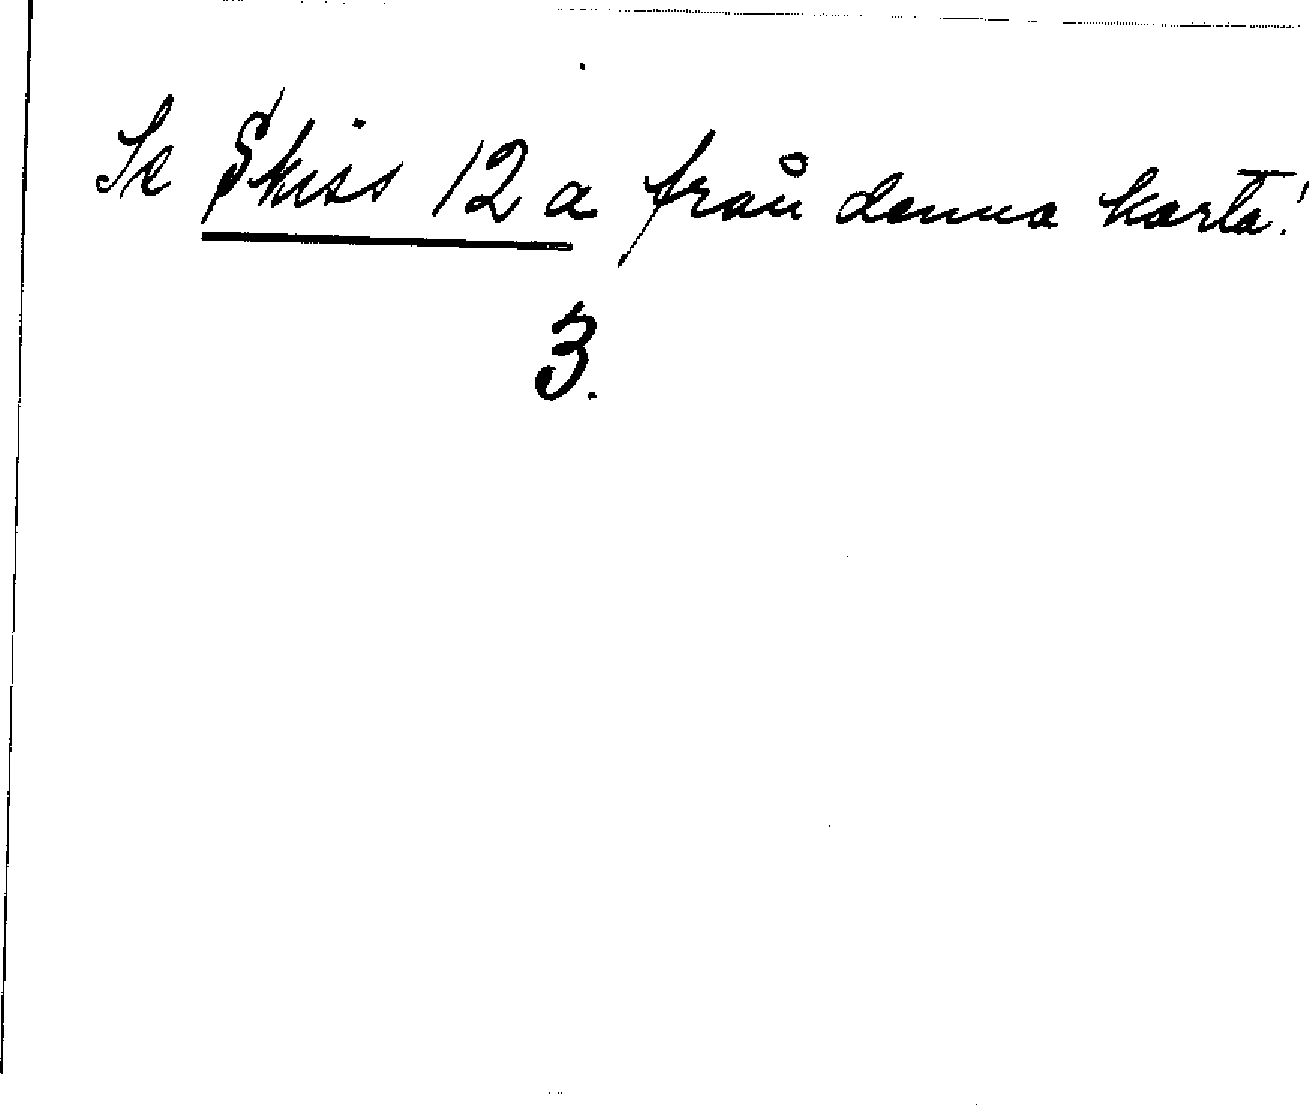 Se Skiss 12 a från denna karta!
3.